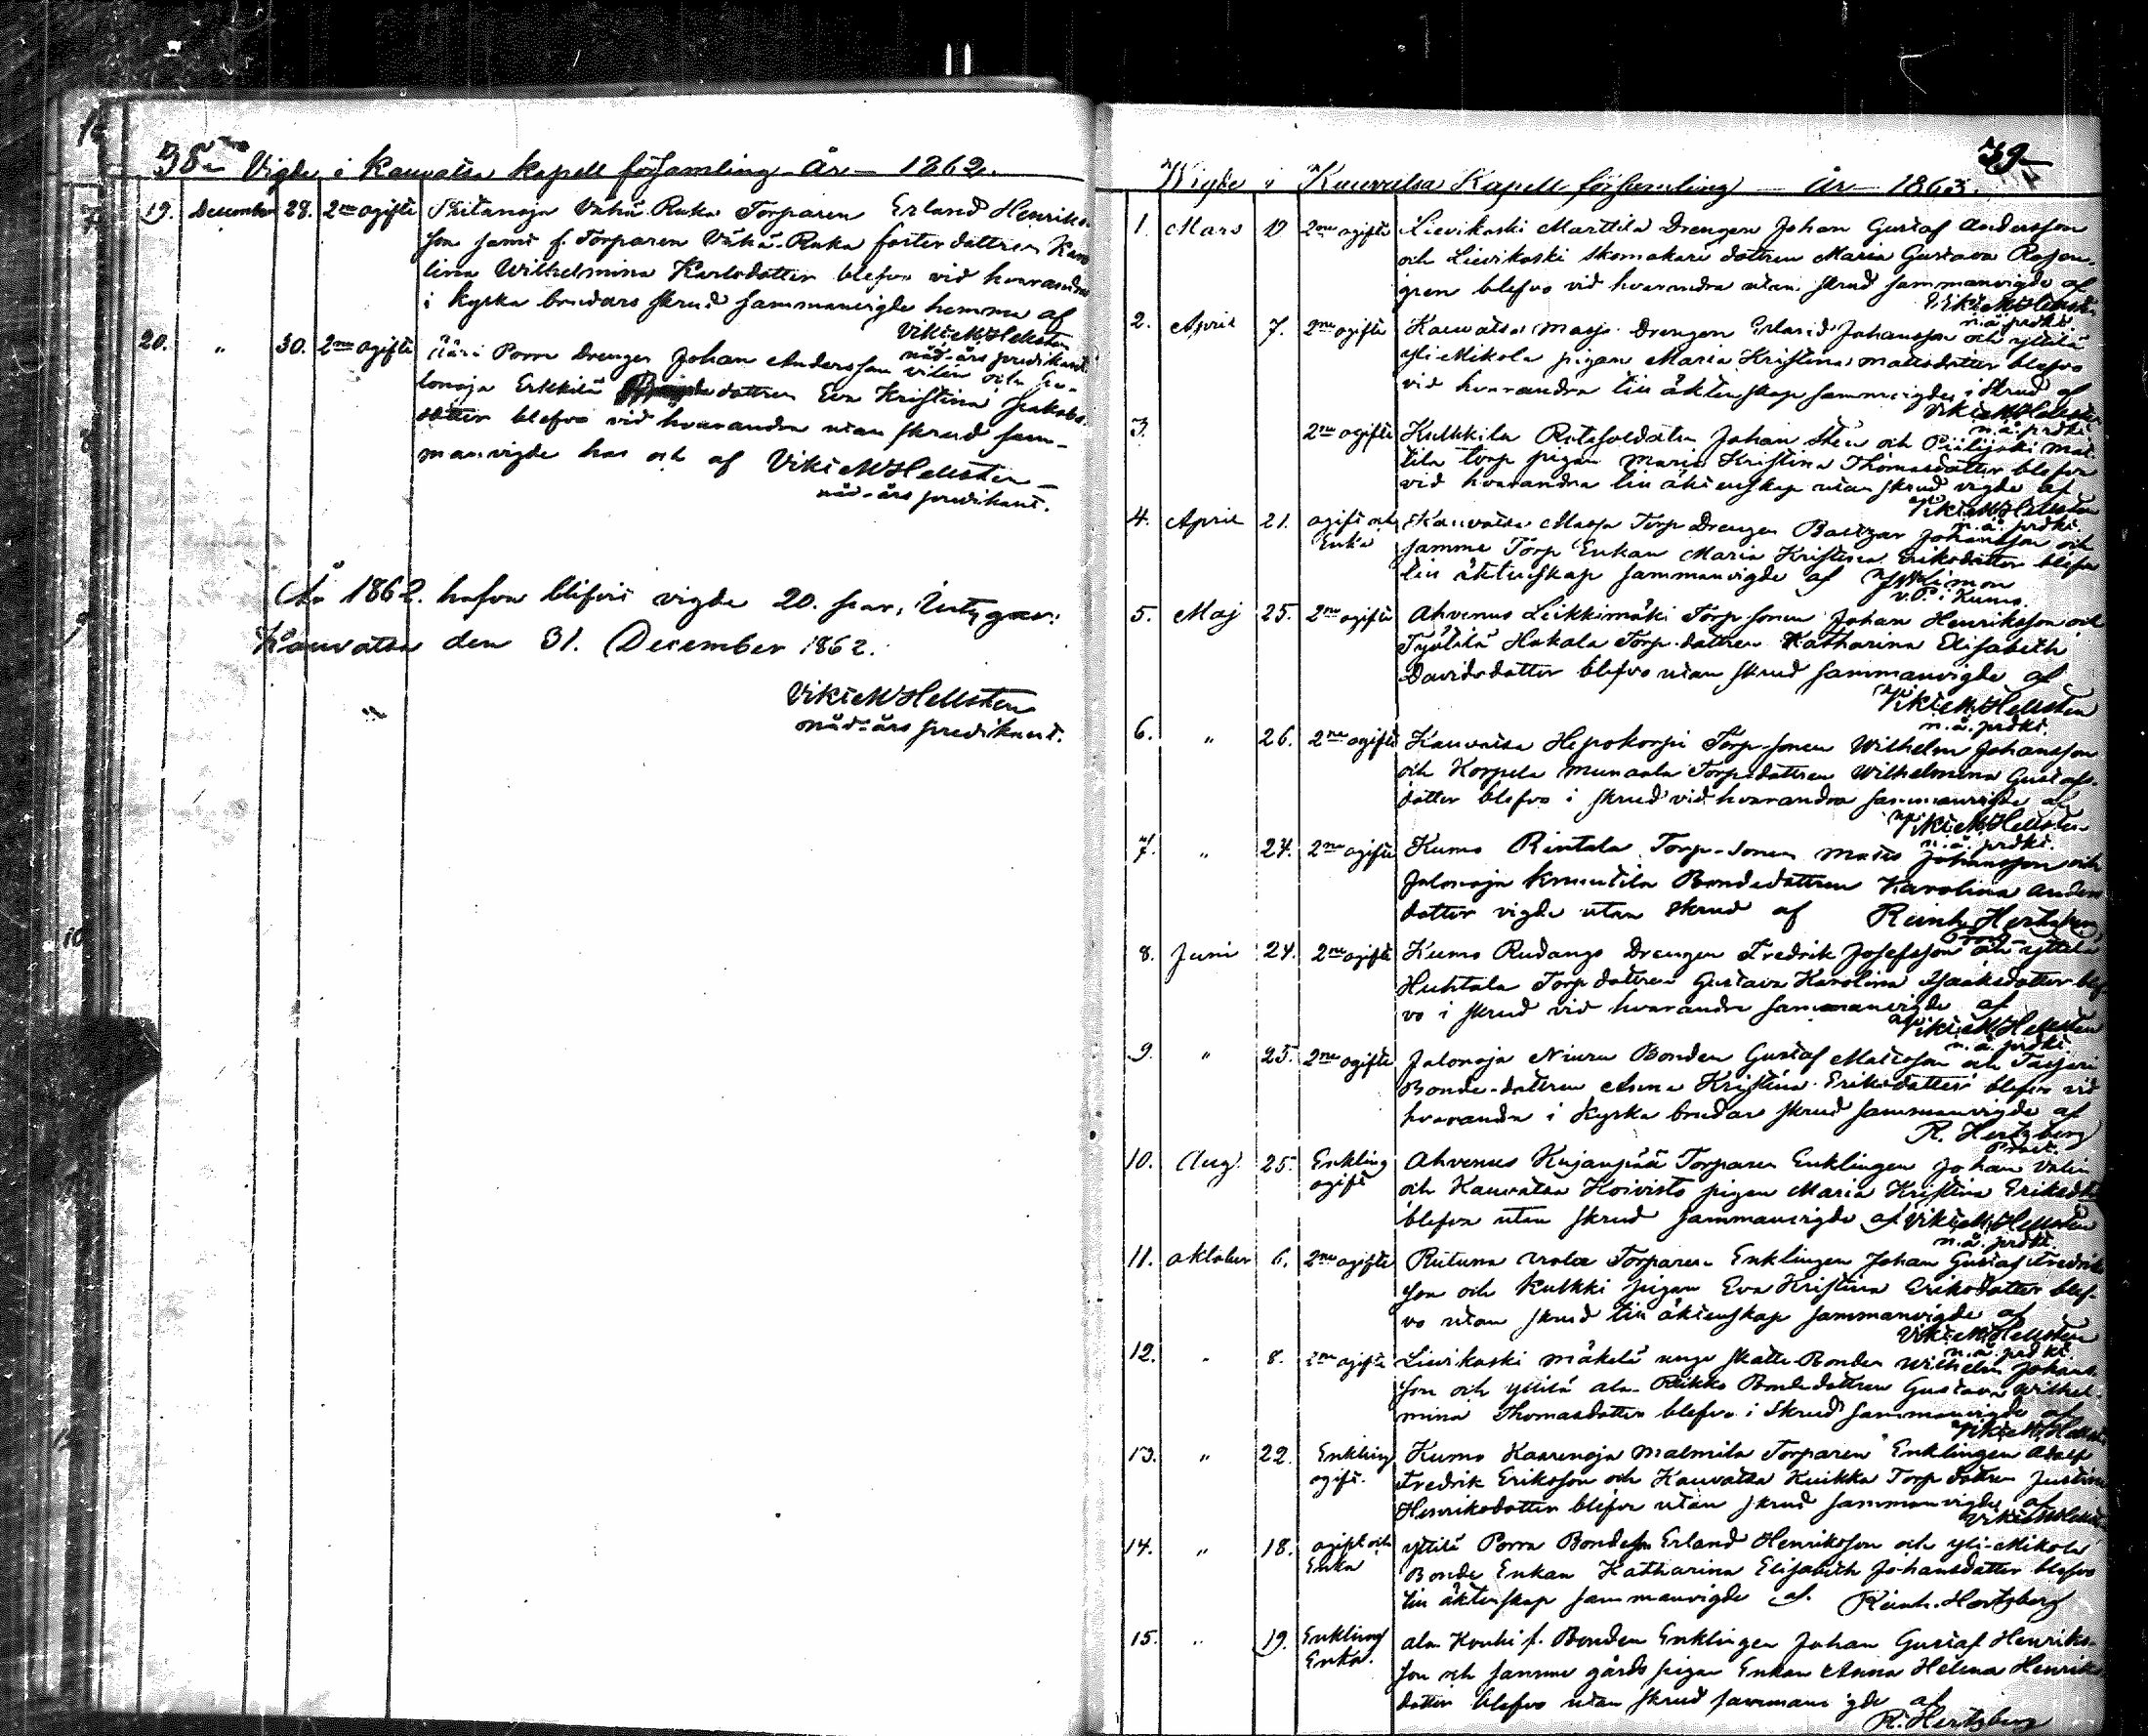 38
Vigde i Kauvatsa kapell församling År 1862.
19. December 28. 2ne ogifte Vähä-Ruka Torparen Erland Henriks-
son samt f. Torparen Vähä-Ruka foster dottren Karo
lina Wilhelmina Karlsdotter blefvo vid hvarandra
i kyska brudars skrud sammanvigde hemma af
Viki M Hellsten
nåd-års predikant.
20. " 30. 2ne ogifte Porra Drengen Johan Andersson och Ja-
lonoja Erkkilä dottren Eva Kristina Jakobs-
dotter blefvo vid hvarandra utan skrud sam-
manvigde hos och af Viki M Hellsten
nåd-års predikant.
År 1862. hafva blifvit vigde 20. par, Intygar:
Kauvatsa den 31. December 1862.
Viki M Hellsten
nåd-års predikant.
39
Vigde i Kauvatsa Kapell församling År 1863.
1. Mars 2ne ogifte Lievikoski Marttila Drengen Johan Gustaf Andersson
och Lievikoski skomakare dottren Maria Gustava Rosen-
gren blefvo vid hvarandra utan skrud sammanvigde af
Viki M Hellsten
n.å. prdkt.
2. April 7. 2ne ogifte Kauvatsa Masja Drengen Erland Johansson och Yttilä
Yli-Mikola pigan Maria Kristina Mattsdotter blefvo
vid hvarandra till äktenskap sammvigde i skrud af
Viki M Hellsten
n.å. prdkt.
3. 2ne ogifte Kulkkila Rotesoldaten Johan Sten och Piilijoki Mat-
tila torp pigan Maria Kristina Thomasdotter blefvo
vid hvarandra till äktenskap utan skrud vigde af
Viki M Hellsten
n.å. prdkt.
4. April 21. ogift och Kauvatsa Masja Torp Drengen Baltzar Johansson och
Enka samma Torp Enkan Maria Kristina Eriksdotter blefvo
till äktenskap sammanvigde af
v. P. i Kumo.
5. Maj 25. 2ne ogifte Ahvenus Leikkimäki Torp-sonen Johan Henriksson och
Hakala Torp-dottren Katharina Elisabeth
Davidsdotter blefvo utan skrud sammanvigde af
Viki M Hellsten
n.å. prdkt.
6. " 26. 2ne ogifte Kauvatsa Hepokorpi Torp-sonen Wilhelm Johansson
och Korpela Munaala Torp-dottren Wilhelmina Gustafs-
dotter blefvo i skrud vid hvarandra sammanvigde af
Viki M Hellsten
n.å. prdkt.
7. " 24. 2ne ogifte Kumo Rintala Torp-sonen Matts Johansson och
Jalonoja Knuutila Bondedottren Karolina Anders
dotter vigde utan skrud af Reinh. Hertzberg
8. Juni 24. 2ne ogifte Kumo Rudangs Drengen Fredrik Josefsson och Yttilä
Huhtala Torp dottren Gustava Karolina Isaaksdotter blef
vo i skrud vid hvarandra sammanvigde af
Viki M Hellsten
n.å. prdkt.
9. " 25. 2ne ogifte Jalonoja Niuru Bonden Gustaf Matsson och
Bonde-dottren Anna Kristina Eriksdotter blefvo vid
hvarandra i kyska brudar skrud sammanvigde af
R. Hertzberg
Prost.
10. Aug. 25. Enkling Ahvenus Kujanpää Torparen Enklingen Johan Valin
ogift och Kauvatsa Koivisto pigan Maria Kristina Eriksdtr
blefvo utan skrud sammanvigde af Viki M Hellsten
n.å. prdkt.
11. Oktober 6. 2ne ogifte Torparen Enklingen Johan Gustaf Fredrik
son och Kulkki pigan Eva Kristina Eriksdotter blef-
vo utan skrud till äktenskap sammanvigde af
Viki M Hellsten
n.å. prdkt.
12. " 8. 2ne ogifte Lievikoski Mäkelä unge skatte-Bonden Wilhelm Johans
son och Yttilä Ala-Rekko Bondedottren Gustava Wilhel
mina Thomasdotter blefvo i skrud sammanvigde af
Viki M Hellsten
13. " 22. Enkling Kumo Kaarenoja Malmila Torparen Enklingen Adolf
ogift. Fredrik Eriksson och Kauvatsa Kuikka Torp dottren Justina
Henriksdotter blefvo utan skrud sammanvigde af
Viki M Hellsten
14. " 18. ogift och Yttilä Porra Bondeson Erland Henriksson och Yli-Mikola
Enka Bonde Enkan Katharina Elisabeth Johansdotter blefvo
till äktenskap sammanvigde af. Reinh. Hertzberg
15. " 19. Enkling Ala-Kouhi f. Bonden Enklingen Johan Gustaf Henriks-
Enka. son och samma gårds pigan Enkan Anna Helena Henriks
dotter blefvo utan skrud sammanvigde af
R. Hertzberg